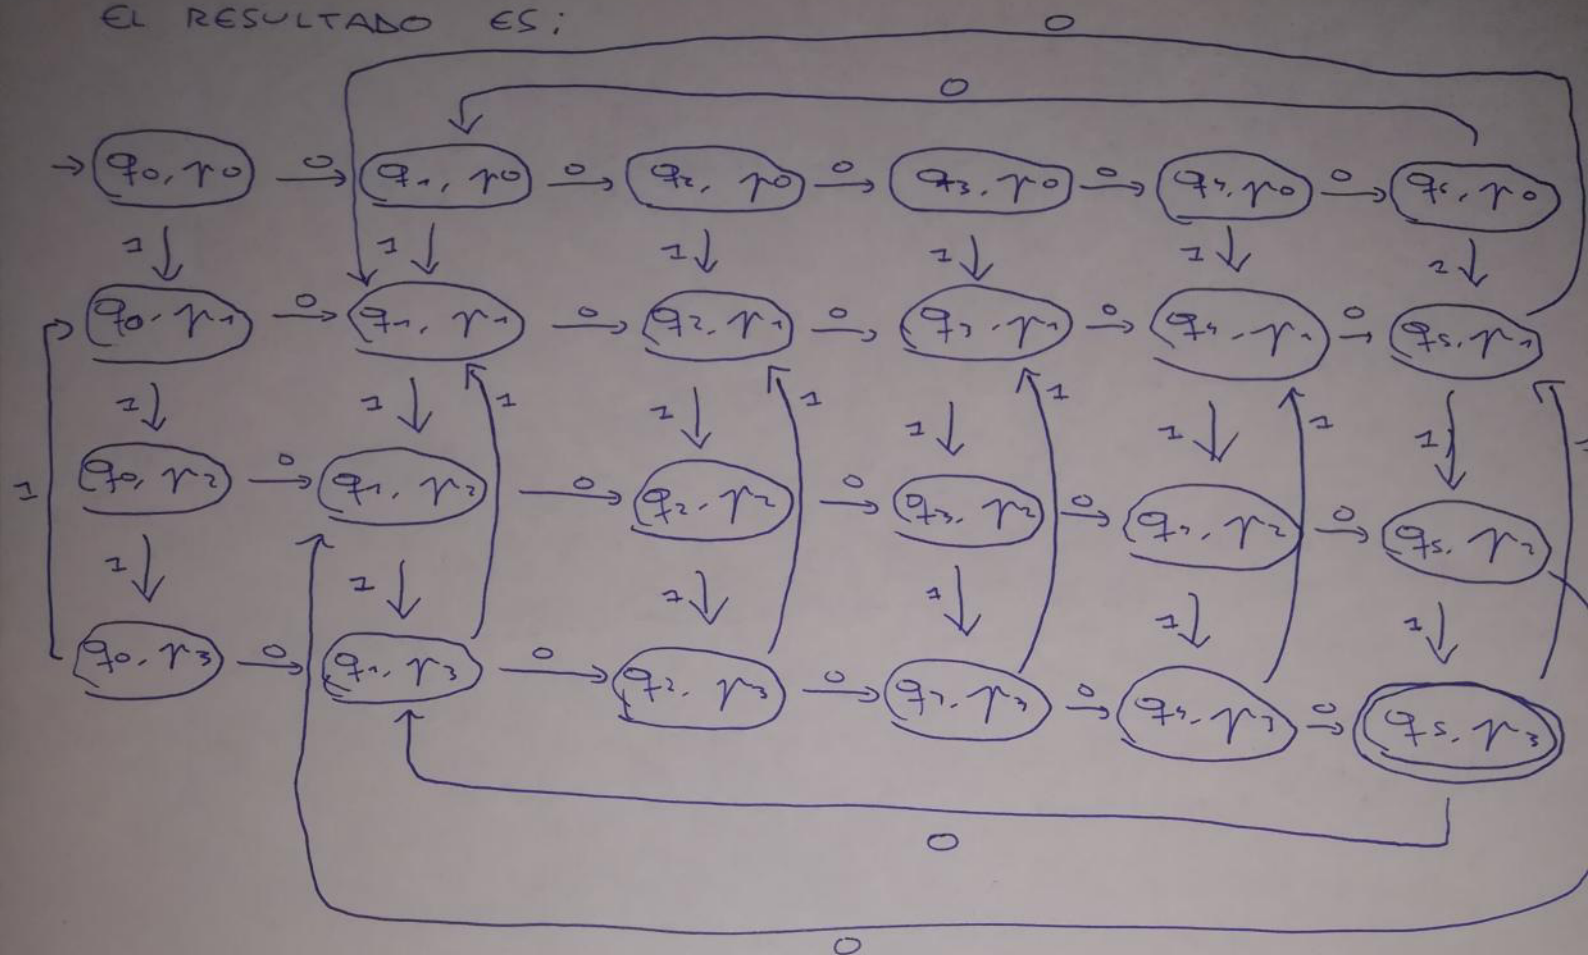 EL RESULTADO ES:
0
0
→ q0, r0 0 q1, r0 0 q2, r0 0 q3, r0 0 q4, r0 0 q5, r0
1 1 1 1 1 1
q0, r1 0 q1, r1 0 q2, r1 0 q3, r1 0 q4, r1 0 q5, r1
1 1 1 1 1 1 1 1 1 1 1
1 q0, r2 0 q1, r2 0 q2, r2 0 q3, r2 0 q4, r2 0 q5, r2
1 1 1 1 1 1
q0, r3 0 q1, r3 0 q2, r3 0 q3, r3 0 q4, r3 0 q5, r3
0
0